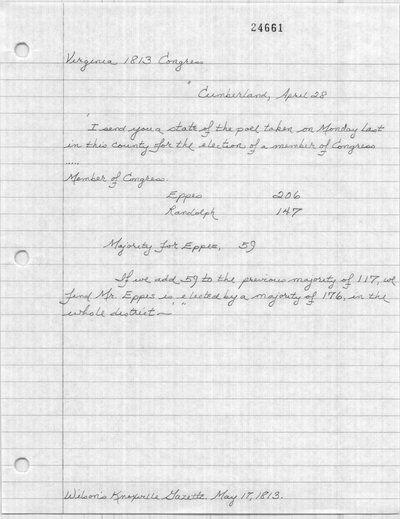 24661
Virginia 1813 Congress
Cumberland, April 28
I send you a state of the poll taken on Monday last
in this county for the election of a member of Congress
.....
Member of Congress
Eppes 206
Randolph 147
Majority for Eppes, 59
If we add 59 to the previous majority of 117, we
find Mr. Eppes is elected by a majority of 176, in the
whole district—
Wilson's Knoxville Gazette. May 17, 1813.